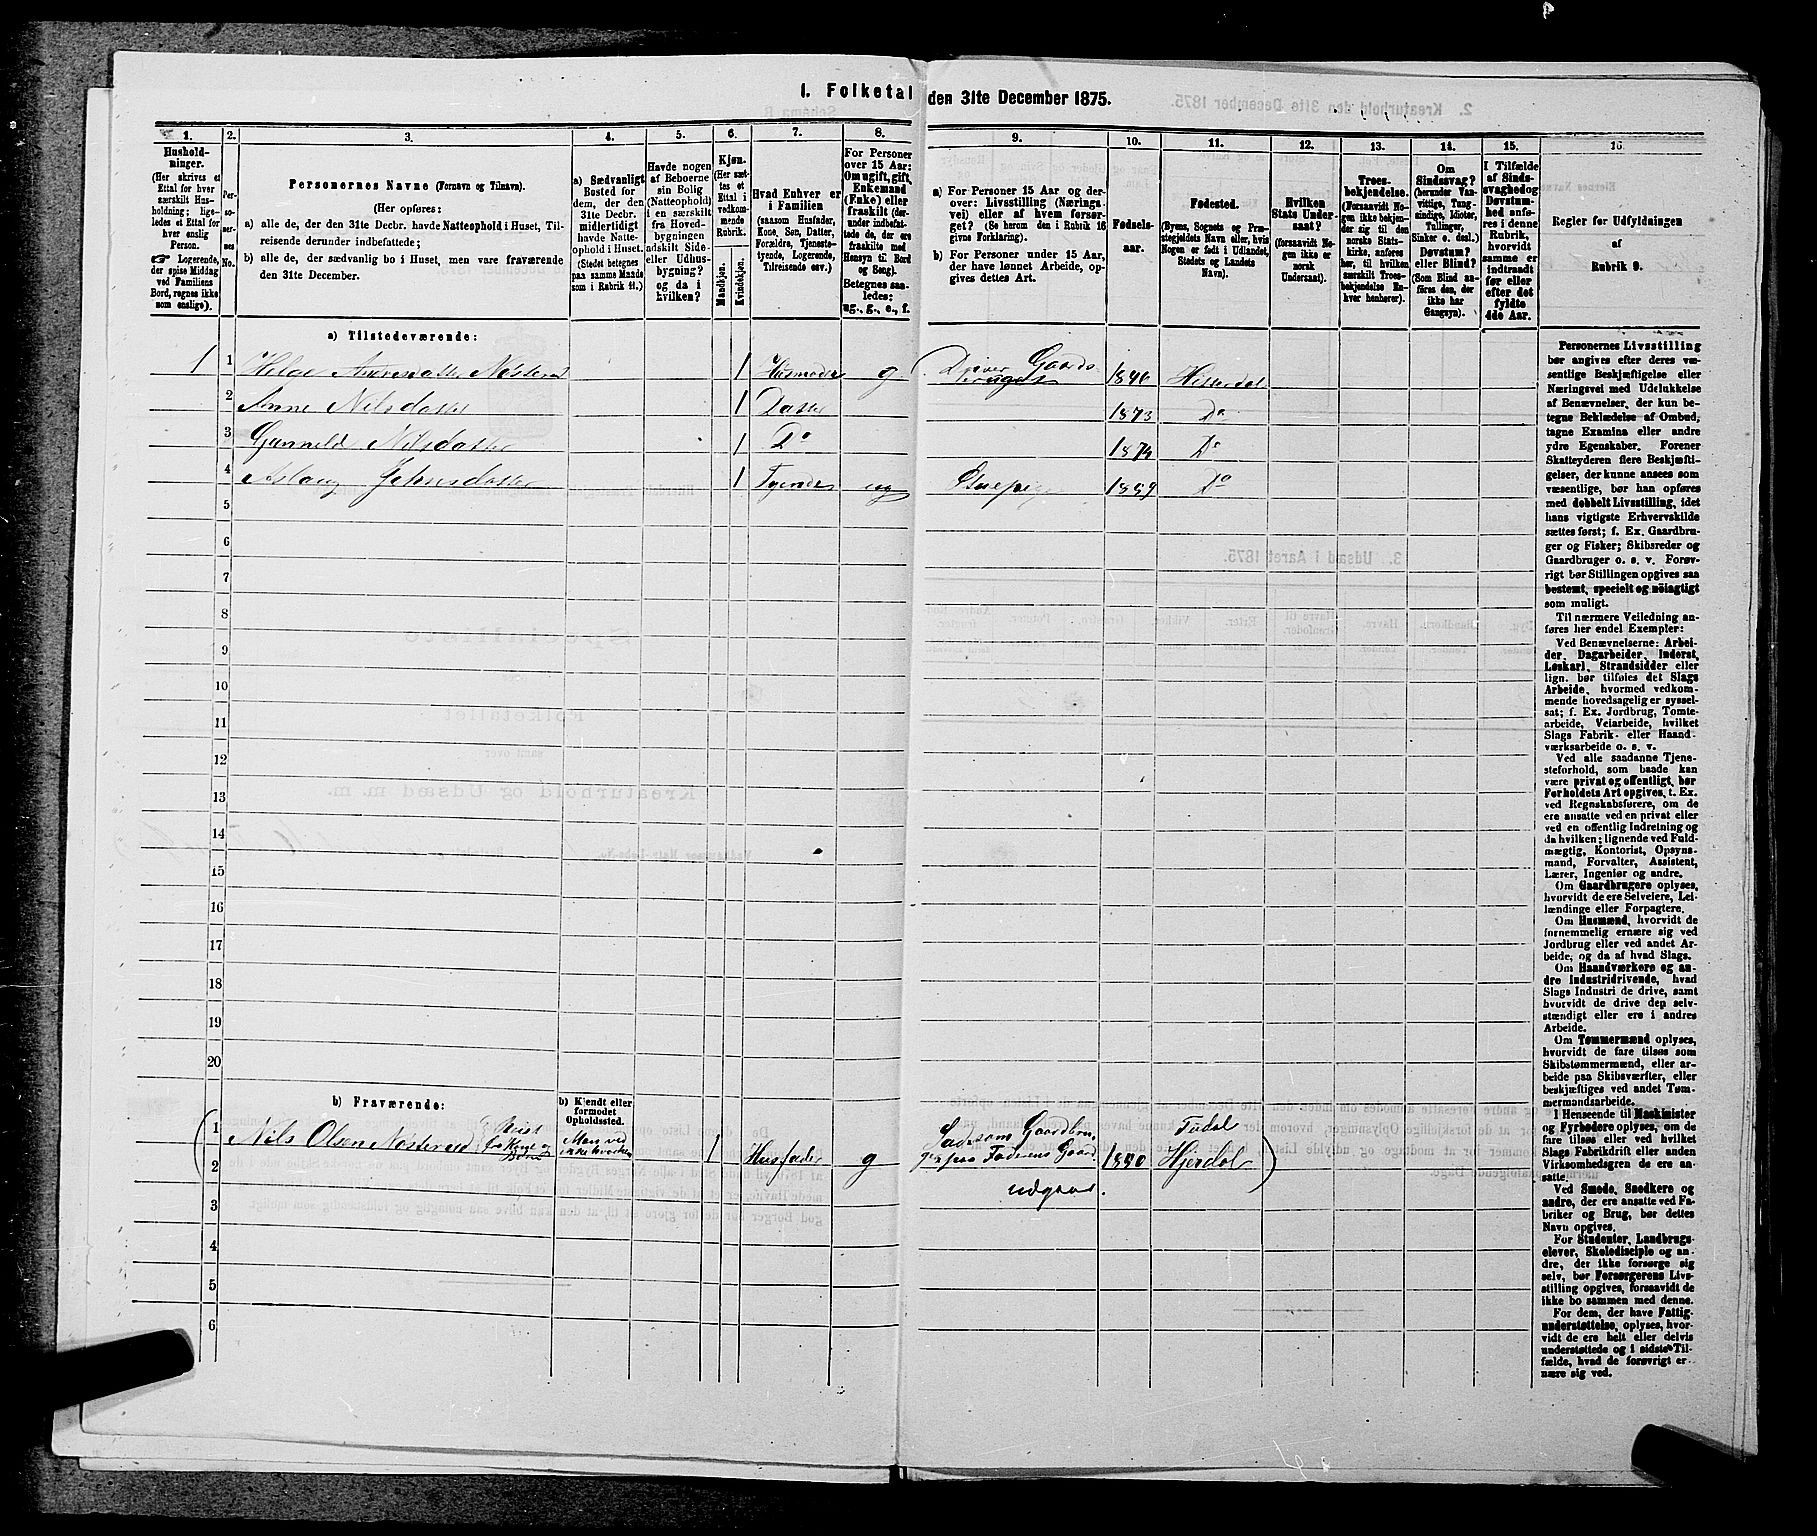 1. Folketal den 31te December 1875.
1.
2.
3.
4.
5.
6.
7.
8.
9.
10.
11.
12.
13.
14.
15.
16.
Hushold-
ninger.
(Her skrives et
Ettal for hver
særskilt Hus-
holdning; lige-
ledes et Ettal for
hver enslig
Person.
☞ Logerende,
der spise Middag
ved Familiens
Bord, regnes ikke
som enslige).
Per-
so-
ner-
nes
No.
Personernes Navne (Fornavn og Tilnavn).
(Her opføres:
a) alle de, der den 31te Decbr. havde Natteophold i Huset, Til-
reisende derunder indbefattede;
b) alle de, der sædvanlig bo i Huset, men vare fraværende
den 31te December.
a) Sædvanligt
Bosted for
dem, der den
31te Decbr.
midlertidigt
havde Natte-
ophold i Huset.
(Stedet betegnes
paa samme Maade
som i Rubrik 11.)
Havde nogen
af Beboerne
sin Bolig
(Natteophold)
i en særskilt
fra Hoved-
bygningen
adskilt Side-
eller Udhus-
bygning?
og da i
hvilken?
Kjøn.
(Her sæt-
tes et
Ettal i
vedkom-
mende
Rubrik.
Mandkjøn.
Kvindekjøn.
Hvad Enhver er
i Familien
(saasom Husfader,
Kone, Søn, Datter,
Forældre, Tjeneste-
tyende, Logerende,
Tilreisende osv.)
For Personer
over 15 Aar:
Om ugift, gift,
Enkemand
(Enke) eller
fraskilt (der-
under indbefat-
tede de, der ere
fraskilte med
Hensyn til Bord
og Seng).
Betegnes saa-
ledes:
ug., g., e., f.
a) For Personer 15 Aar og der-
over: Livsstilling (Nærings-
vei) eller af hvem forsør-
get? (Se herom den i Rubrik 16
givne Forklaring).
b) For Personer under 15 Aar,
der have lønnet Arbeide, op-
gives dettes Art.
Fødsels-
aar.
Fødested.
(Byens, Sognets og Præ-
stegjeldets Navn eller, hvis
Nogen er født i Udlandet,
Stedets og Landets
Navn).
Hvilken
Stats Under-
saat?
(forsaavidt No-
gen ikke er
norsk
Undersaat).
Troes-
bekjendelse.
(Forsaavidt No-
gen ikke bekjen-
der sig til den
norske Stats-
kirke, anføres
her, til hvilken
særskilt Troes-
bekjendelse En-
hver henhører).
Om
Sindssvag?
(herunder Van-
vittige, Tung-
sindige, Idioter,
Tullinger,
Sinker o. desl.)
Døvstum?
eller Blind?
(Som Blind an-
føres den, der
ikke har
Gangsyn).
I Tilfælde
af Sinds-
svaghed og
Døvstum-
hed anfø-
res i denne
Rubrik,
hvorvidt
samme er
indtraadt
før eller
efter det
fyldte
4de Aar.
Regler før Udfyldningen
af
Rubrik 9.
a) Tilstedeværende:
1 1 1 Husmoder g Gaards 1840 Hitterdal
2 Anne Nilsdatter 1 Datter 1873 Do
3 Gunnild Nilsdatter 1 Do 1874 Do
4 Aslaug Johnsdatter 1 Tyende ug 1859 Do
5
6
7
8
9
10
11
12
13
14
15
16
17
18
19
20
b) Fraværende:
b) Kjendt eller
formodet
Opholdssted.
1 Nils Olsen Fødal
2 1 Husfader g Hjerdal
3
4
5
6
Personernes Livsstilling
bør angives efter deres væ-
sentlige Beskjæftigelse eller
Næringsvei med Udelukkelse
af Benævnelser, der kun be-
tegne Beklædelse af Ombud,
tagne Examina eller andre
ydre Egenskaber. Forener
Skatteyderen flere Beskjæfti-
gelser, der kunne ansees som
væsentlige, bør han opføres
med dobbelt Livsstilling, idet
hans vigtigste Erhvervskilde
sættes først; f. Ex. Gaardbru-
ger og Fisker; Skibsreder og
Gaardbruger o. s. v. Forøv-
rigt bør Stillingen opgives saa
bestemt, specielt og nöiagtigt
som muligt.
Til nærmere Veiledning an-
føres her endel Exempler:
Ved Benævnelserne: Arbei-
der, Dagarbeider, Inderst,
Løskarl, Strandsidder eller
lign. bør tilføies det Slags
Arbeide, hvormed vedkom-
mende hovedsagelig er syssel-
sat; f. Ex. Jordbrug, Tomte-
arbeide, Veiarbeide, hvilket
Slags Fabrik- eller Haand-
værksarbeide o. s. v.
Ved alle saadanne Tjene-
steforhold, som baade kan
være privat og offentligt, bør
Forholdets Art opgives, t. Ex.
ved Regnskabsførere, om de
ere ansatte ved en privat eller
ved en offentlig Indretning og
da hvilken; lignende ved Fuld-
mægtig, Kontorist, Opsyns-
mand, Forvalter, Assistent,
Lærer, Ingeniør og andre.
Om Gaardbrugere oplyses,
hvorvidt de ere Selveiere, Lei-
lændinge eller Forpagtere.
Om Husmænd, hvorvidt de
fornemmelig ernære sig ved
Jordbrug eller ved andet Ar-
beide, og da af hvad Slags.
Om Haandværkere og an-
dre Industridrivende, hvad
Slags Industri de drive, samt
hvorvidt de drive den selv-
stændigt eller ere i andres
Arbeide.
Om Tømmermænd oplyses,
hvorvidt de fare tilsøs som
Skibstømmermænd, eller ar-
beide paa Skibsværfter, eller
beskjæftiges ved andet Tøm-
mermandsarbeide.
I Henseende til Maskinister
og Fyrbødere oplyses, om de
fare tilsøs eller ved hvilket
Slags Fabrikdrift eller anden
Virksomhedsgren de ere an-
satte.
Ved Smede, Snedkere og
andre, der ere ansatte ved Fa-
briker og Brug, bør dettes
Navn opgives.
For Studenter, Landbrugs-
elever, Skoledisciple og an-
dre, der ikke forsørge sig
selv, bør Forsørgerens Livs-
stilling opgives, forsaavidt de
ikke bo sammen med denne.
For dem, der have Fattig-
understøttelse, oplyses, hvor-
vidt de ere helt eller delvis
understøttede og i sidste Til-
fælde, hvad de forøvrigt er-
nære sig ved.